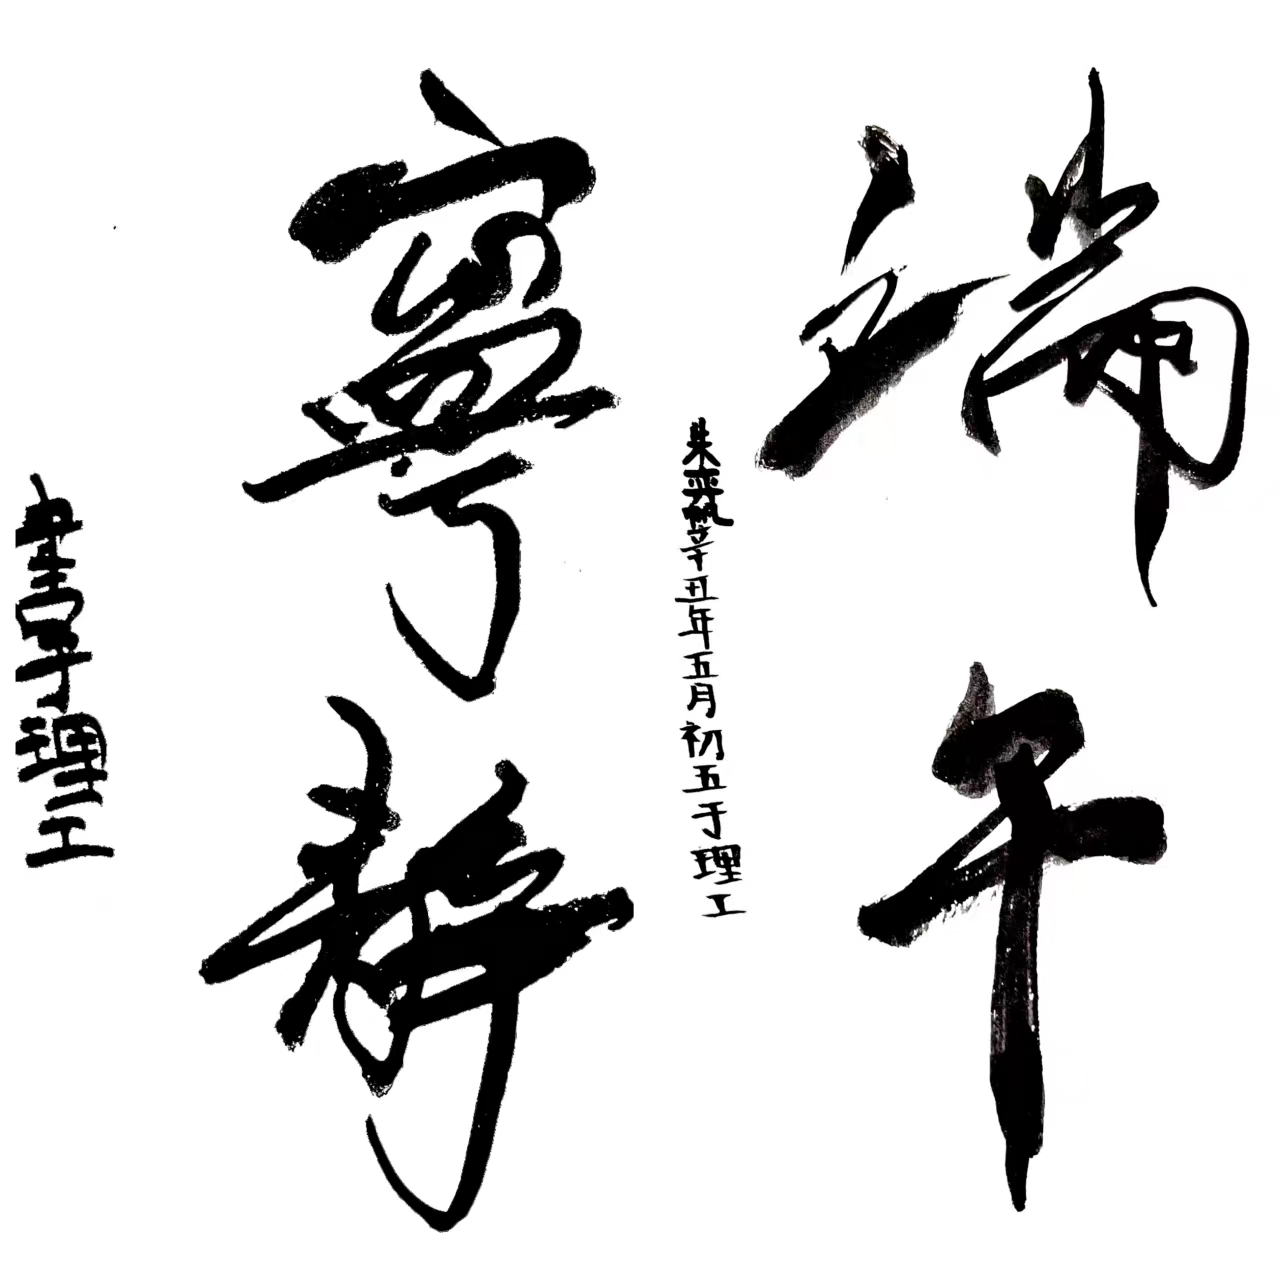 端午
朱奕帆辛丑年五月初五于理工
寧静
书于理工